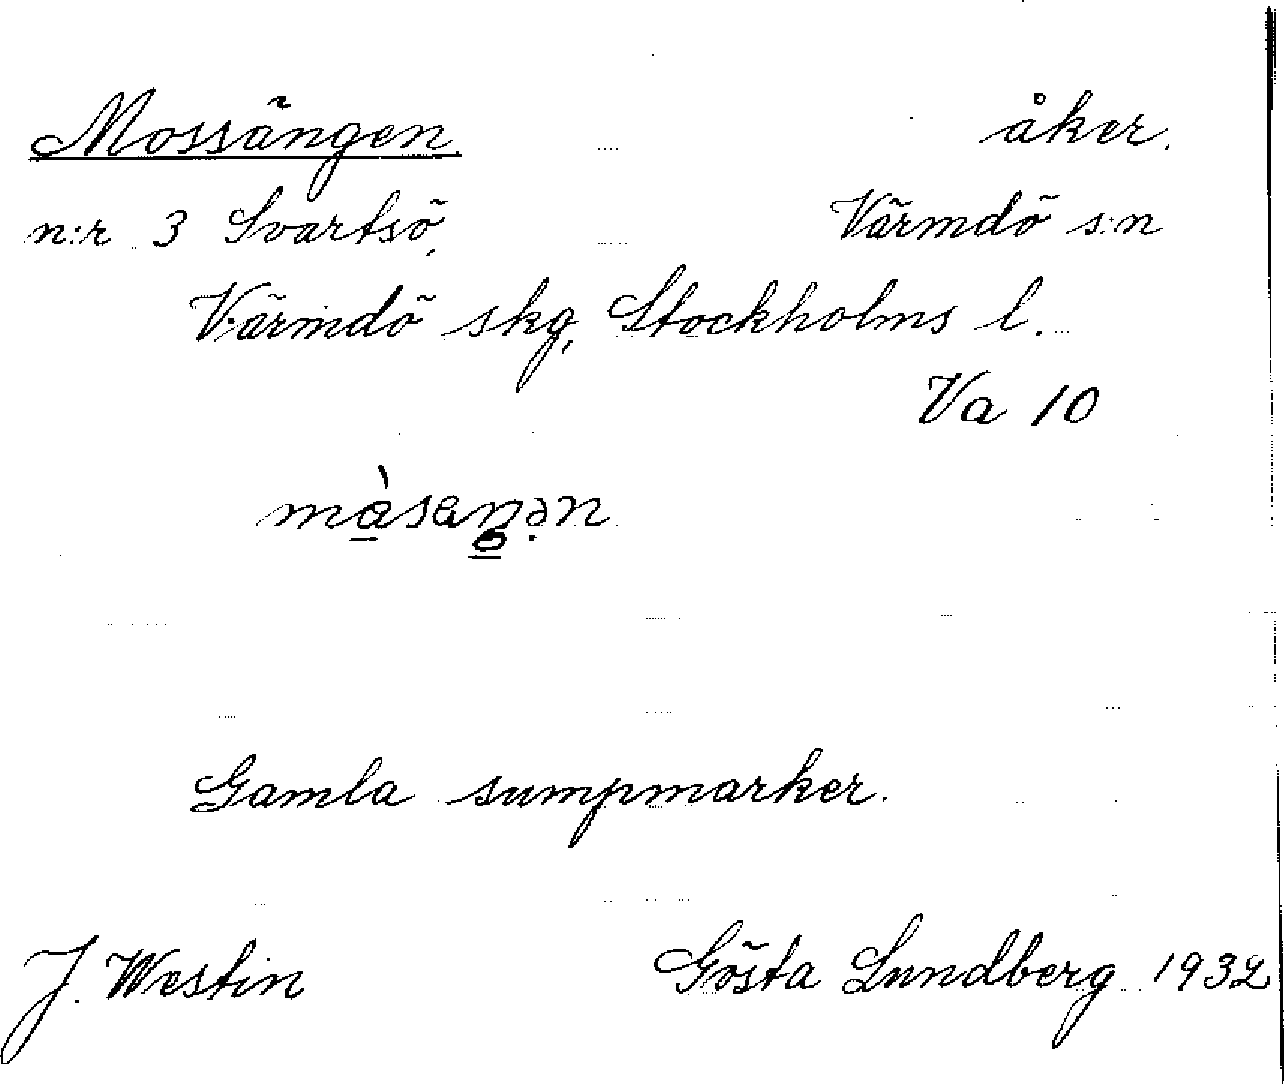 Mossängen åker.
n:r 3 Svartsö, Värmdö s:n
Värmdö skg, Stockholms l.
Va 10
Gamla sumpmarker.
J. Westin Gösta Lundberg 1932